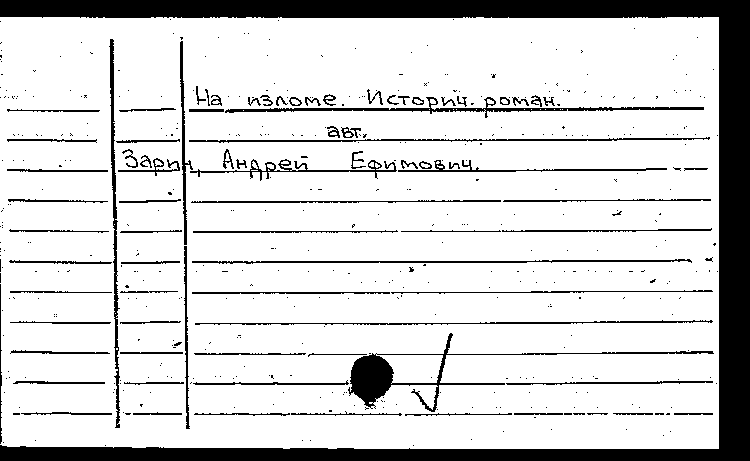 На изломе. Историч. роман.
авт.
Зарин, Андрей Ефимович.